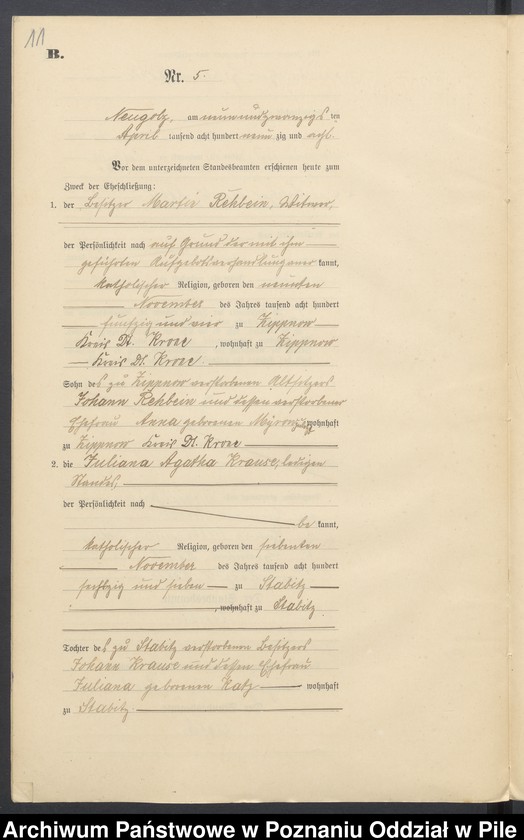 11
B.
Nr. 5.
Neugolz, am neunundzwanzigsten
April tausend acht hundert neunzig und acht.
Vor dem unterzeichneten Standesbeamten erschienen heute zum
Zweck der Eheschließung:
1. der Besitzer Martin Rehbein, Witwer,
der Persönlichkeit nach auf Grund der mit ihm
geführten Aufgebotsverhandlung anerkannt,
katholischer Religion, geboren den neunten
November des Jahres tausend acht hundert
fünfzig und vier zu Zippnow
Kreis Dt. Krone, wohnhaft zu Zippnow
Kreis Dt. Krone
Sohn des zu Zippnow verstorbenen Altsitzers
Johann Rehbein und dessen verstorbener
Ehefrau Anna geborenen wohnhaft
zu Zippnow Kreis Dt. Krone
2. die Juliana Agatha Krause, ledigen
Standes,
der Persönlichkeit nach
be kannt,
katholischer Religion, geboren den siebenten
November des Jahres tausend acht hundert
sechszig und sieben zu Stabitz
, wohnhaft zu Stabitz
Tochter des zu Stabitz verstorbenen Besitzers
Johann Krause und dessen Ehefrau
Juliana geborenen Katz wohnhaft
zu Stabitz.
Archiwum Państwowe w Poznaniu Oddział w Pile